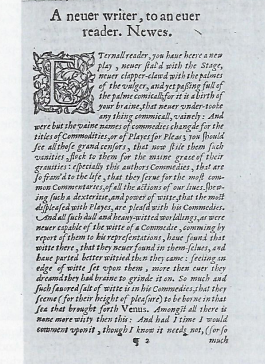 A neuer writer, to an euer
reader. Newes.
Eternall reader, you haue heere a new
play, neuer stal'd with the Stage,
neuer clapper-clawd with the palmes
of the vulger, and yet passing full of
the palme comicall; for it is a birth of
your braine, that neuer vnder-tooke
any thing commicall, vainely: And
were but the vaine names of commedies changde for the
titles of Commodities, or of Playes for Pleas; you should
see all those grand censors, that now stile them such
vanities, flock to them for the maine grace of their
grauities: especially this authors Commedies, that are
so fram'd to the life, that they serue for the most com-
mon Commentaries, of all the actions of our liues, shew-
ing such a dexteritie, and power of witte, that the most
displeased with Playes, are pleasd with his Commedies.
And all such dull and heauy-witted worldlings, as were
neuer capable of the witte of a Commedie, comming by
report of them to his representations, haue found that
witte there, that they neuer found in them-selues, and
haue parted better wittied then they came: feeling an
edge of witte set vpon them, more then euer they
dreamd they had braine to grinde it on. So much and
such sauored salt of witte is in his Commedies, that they
seeme (for their height of pleasure) to be borne in that
sea that brought forth Venus. Amongst all there is
none more witty then this: And had I time I would
comment vpon it, though I know it needs not, (for so
¶ 2 much